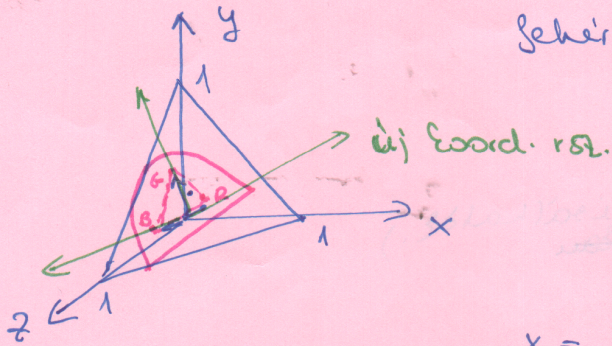 y
fehér
1
új koord. rsz.
G
R
B
x
1
1
z
x =